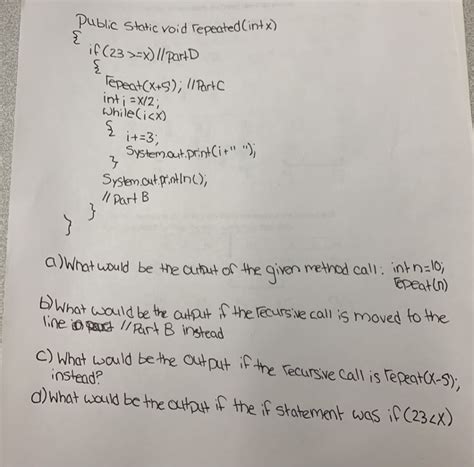 Public static void repeated(int x)
{
if(23>=x)//partD
{
repeat(x+5); //PartC
int i = x/2;
while(i<x)
{
i+=3;
System.out.print(i+" ");
}
System.out.println();
// Part B
}
}
a) What would be the output of the given method call: int n=10;
repeat(n)
b) What would be the output if the recursive call is moved to the
line // Part B instead
c) What would be the output if the recursive call is repeat(x-5);
instead?
d) What would be the output if the if statement was if (23<x)